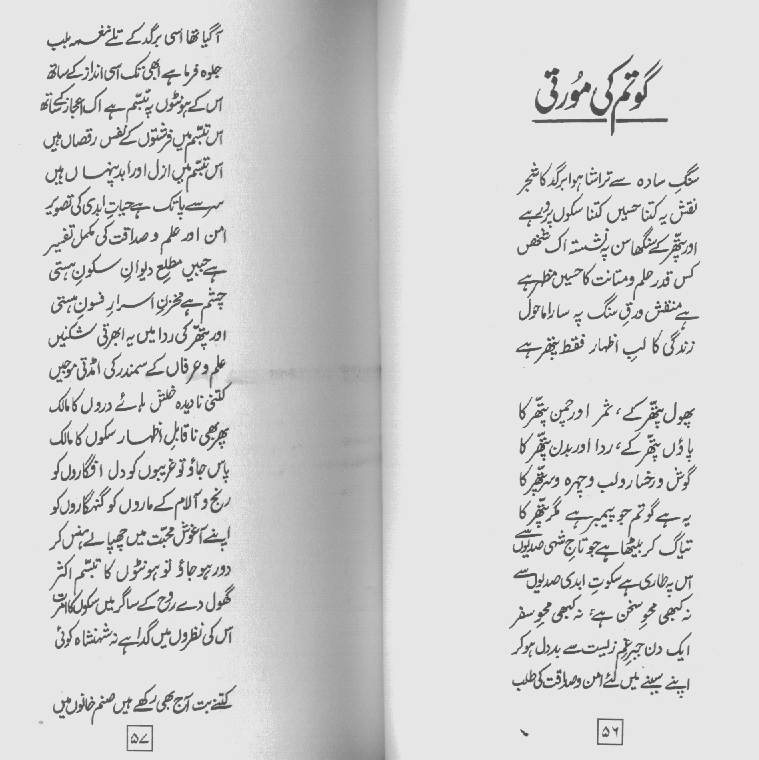 گوتم کی مورتی
سنگِ سادہ سے تراشا ہوا برگد کا شجر
نقش یہ کتنا حسیں کتنا سکوں پرور ہے
اور پتھر کے سنگھاسن پہ نشستہ اک شخص
کس قدر حلم و متانت کا حسیں مظہر ہے
ہے منقش ورقِ سنگ پہ سارا ماحول
زندگی کا لبِ اظہار فقط پتھر ہے
پھول پتھر کے، ثمر اور چمن پتھر کا
پاؤں پتھر کے، ردا اور بدن پتھر کا
گوش و رخسار و لب و چہرہ و سر پتھر کا
یہ ہے گوتم جو پیمبر ہے مگر پتھر کا
تیاگ کر بیٹھا ہے جو تاجِ شہی صدیوں سے
اس پہ طاری ہے سکوتِ ابدی صدیوں سے
نہ کبھی محوِ سخن ہے، نہ کبھی محوِ سفر
ایک دن جبرِ غمِ زیست سے بددل ہو کر
اپنے سینے میں لئے امن و صداقت کی طلب
۵۶
آ گیا تھا اسی برگد کے تلے نغمہ بلب
جلوہ فرما ہے ابھی تک اسی انداز کے ساتھ
اس کے ہونٹوں پہ تبسّم ہے اک اعجاز کے ساتھ
اس تبسّم میں فرشتوں کے نفس رقصاں ہیں
اس تبسّم میں ازل اور ابد پنہاں ہیں
سر سے پا تک ہے حیاتِ ابدی کی تصویر
امن اور علم و صداقت کی مکمل تفسیر
ہے جبیں مطلعِ دیوانِ سکونِ ہستی
چشم ہے مخزنِ اسرارِ فسونِ ہستی
اور پتھر کی ردا میں یہ ابھرتی شکنیں
علم و عرفاں کے سمندر کی امڈتی موجیں
کتنی نادیدہ خلش ہائے دروں کا مالک
پھر بھی ناقابلِ اظہار سکوں کا مالک
پاس جاؤ تو غریبوں کو دل افگاروں کو
رنج و آلام کے ماروں کو گنہگاروں کو
اپنے آغوشِ محبّت میں چھپالے ہنس کر
دور ہو جاؤ تو ہونٹوں کا تبسّم اکثر
گھول دے روح کے ساگر میں سکوں کا امرت
اس کی نظروں میں گدا ہے نہ شہنشاہ کوئی
کتنے بت آج بھی رکھے ہیں صنم خانوں میں
۵۷